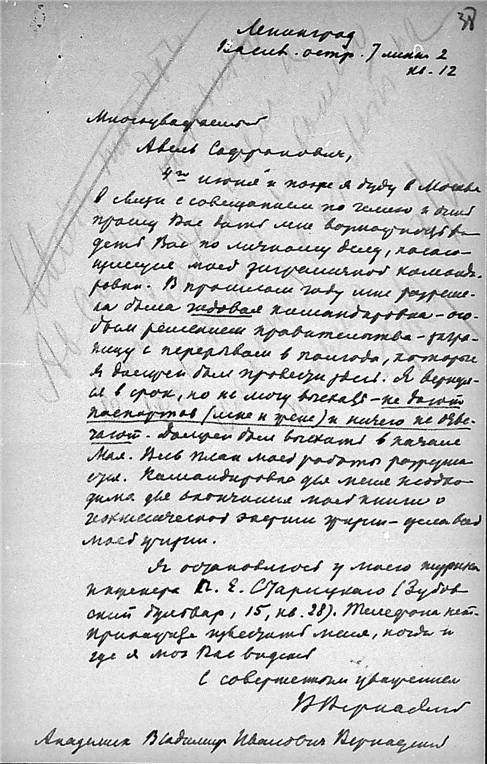 38
Ленинград
Васил. остр. 7 линия 2
кв. 12
Многоуважаемый
Авель Софронович,
4го июня и позже я буду в Москве
в связи с совещанием по гелию и очень
прошу Вас дать мне возможность ви-
деть Вас по личному делу, касаю-
щемуся моей заграничной команди-
ровки. В прошлом году мне разреше-
на была годовая командировка - осо-
бым решением правительства - загра-
ницу с перерывом в полгода, которые
я должен был провести здесь. Я вернул-
ся в срок, но не могу выехать - не дают
паспортов (мне и жене) и ничего не отве-
чают. Должен был выехать в начале
Мая. Весь план моей работы разруша-
ется. Командировка для меня необхо-
дима для окончания моей книги о
геохимической энергии жизни - дела всей
моей жизни.
Я остановлюсь у моего шурина
инженера П. Е. Старицкого (Зубов-
ский бульвар, 15, кв. 28). Телефона нет.
известить меня, когда и
где я мог Вас видеть
С совершенным уважением
В Вернадский
Академик Владимир Иванович Вернадский